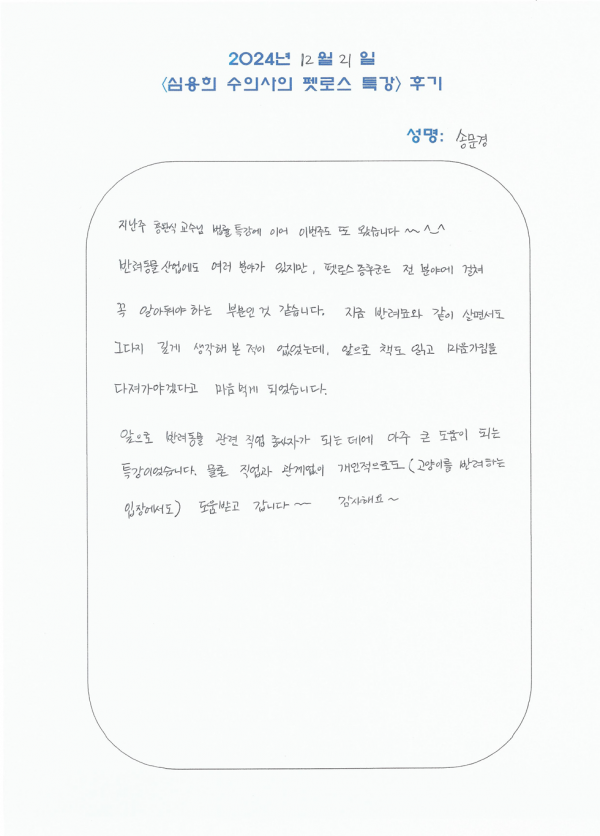 2024년 12월 21일
<심용희 수의사의 펫로스 특강> 후기
성명: 송문경
지난주 홍완식 교수님 법률 특강에 이어 이번주도 또 왔습니다 ~~ ^_^
반려동물 산업에도 여러 분야가 있지만, 펫로스 증후군은 전 분야에 걸쳐
꼭 알아둬야 하는 부분인 것 같습니다. 지금 반려묘와 같이 살면서도
그다지 깊게 생각해 본 적이 없었는데, 앞으로 책도 읽고 마음가짐을
다져가야겠다고 마음먹게 되었습니다.
앞으로 반려동물 관련 직업 종사자가 되는 데에 아주 큰 도움이 되는
특강이었습니다. 물론 직업과 관계없이 개인적으로도 (고양이를 반려하는
입장에서도) 도움받고 갑니다 ~~ 감사해요 ~